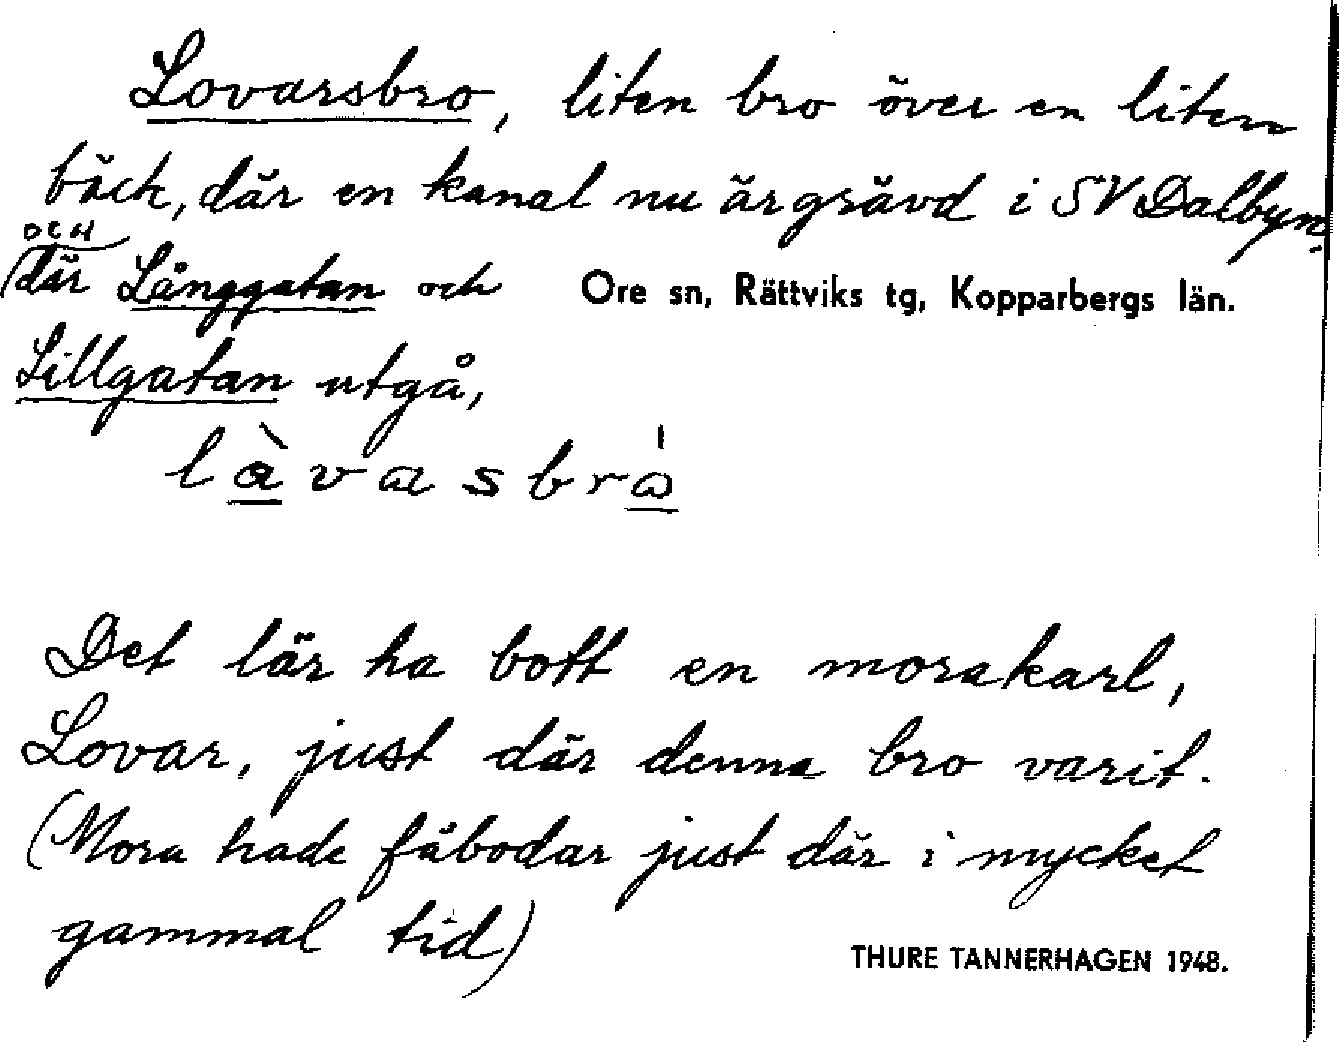 Lovarsbro, liten bro över en liten
bäck, där en kanal nu är grävd i SV Dalbyn,
OCH
där Långgatan och
Ore sn, Rättviks tg, Kopparbergs län.
Lillgatan utgå,
là̱vasbrå̱
Det lär ha bott en morakarl,
Lovar, just där denna bro varit.
(Mora hade fäbodar just där i mycket
gammal tid)
THURE TANNERHAGEN 1948.